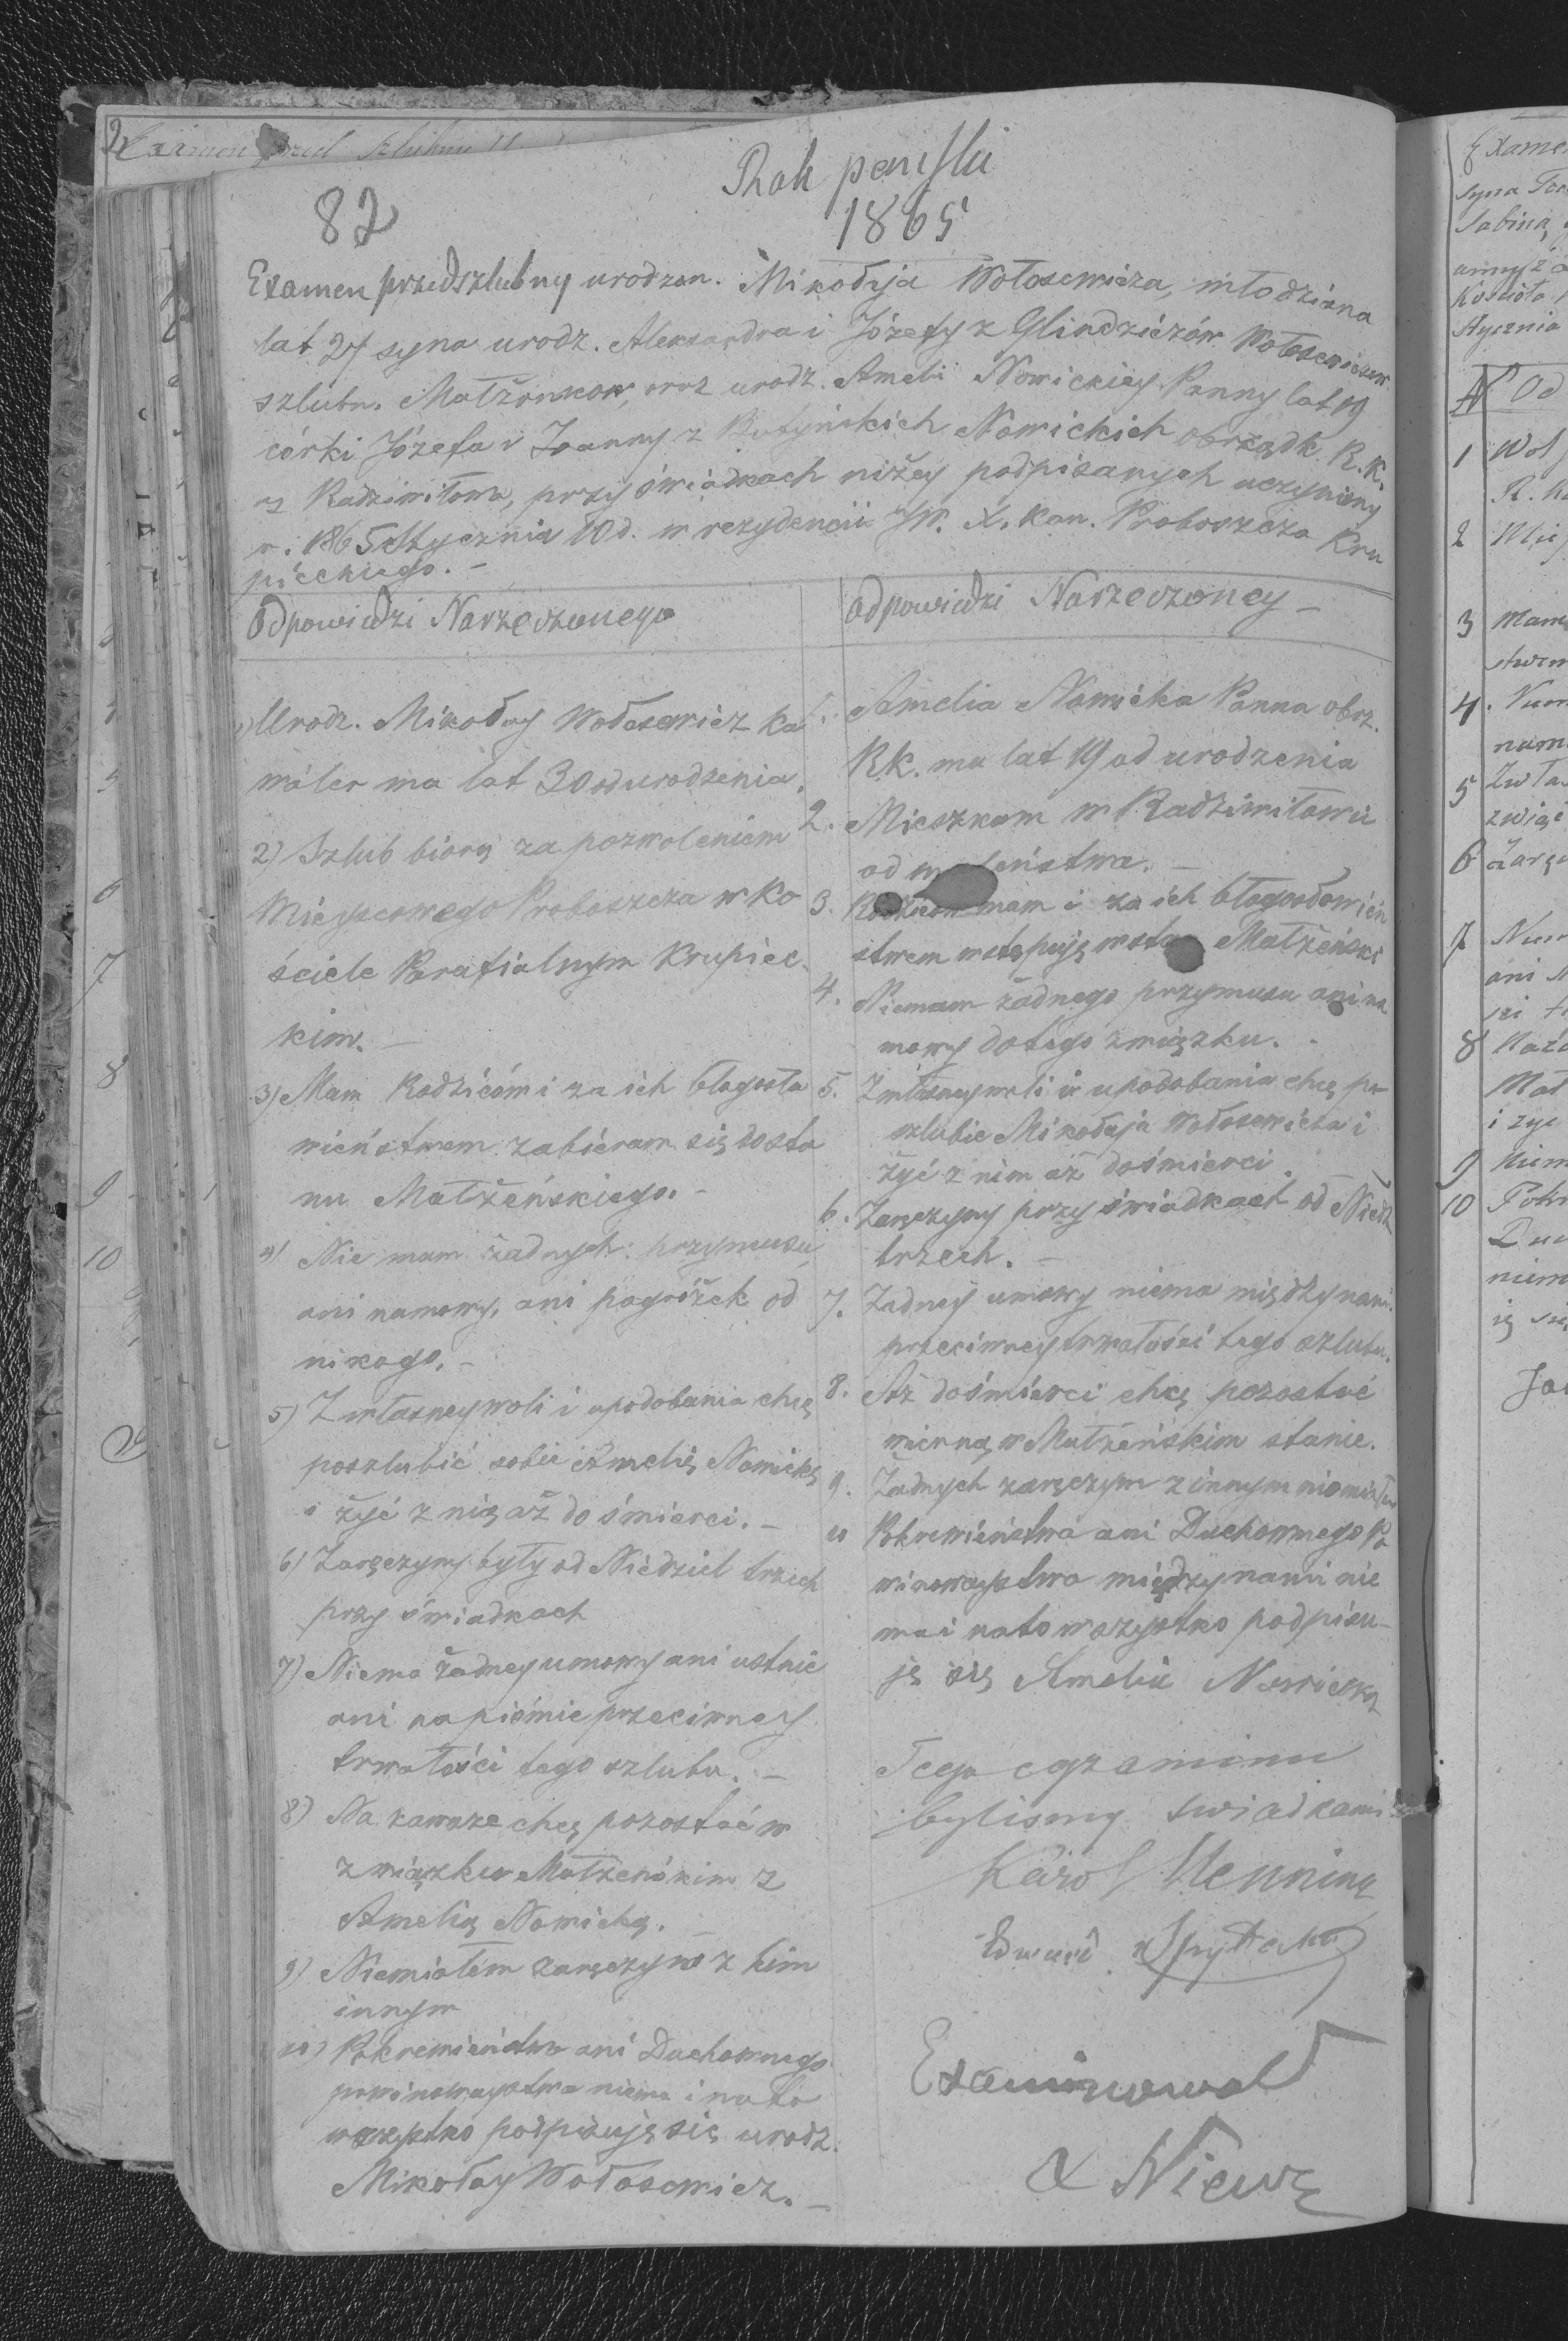 Rok pański
82
1865
Examen przedszlubny urodzon. Mikołaja Wołosewicza, młodziana
lat 27 syna urodz. Alexandra i Józefy z Glindziczów Wołosewiczów
szlubn. Małżonkow, oraz urodz. Amelii Nowickiey Panny lat 19
córki Józefa i Joanny z Butyńskich Nowickich obrządk. R. K.
z Radziwiłowa, przy świadkach niżey podpisanych uczyniony
r. 1865 Stycznia 10 d. w rezydencii JW. X. Kan. Proboszcza Kru
pieckiego. –
Odpowiedzi Narzeczonego
1) Urodz. Mikołay Wołosewicz ka
waler ma lat 30 od urodzenia.
2) Szlub biorę za pozwoleniem
Mieyscowego Proboszcza w Ko
ściele Parafialnym Krupiec
kim. –
3) Mam Rodziców i za ich błogosła
wieństwem zabieram się do sta
nu Małżeńskiego. –
4) Nie mam żadnych: przymusu,
ani namowy, ani pogróżek od
nikogo. –
5) Z własney woli i upodobania chcę
poszlubić sobie Amelię Nowicką
i żyć z nią aż do śmierci. –
6) Zaręczyny były od Niedziel trzech
przy świadkach
7) Niema żadney umowy ani ustnie
ani na piśmie przeciwney
trwałości tego szlubu. –
8) Na zawsze chcę pozostać w
związku Małżeńskim z
Amelią Nowicką. –
9) Niemiałem zaręczyn z kim
innym
10) Pokrewieństwa ani Duchownego
powinowaystwa niema i na to
wszystko podpisuję się urodz.
Mikołay Wołosewicz. –
Odpowiedzi Narzeczoney –
1. Amelia Nowicka Panna obrz.
RK. ma lat 19 od urodzenia
2. Mieszkam w Radziwiłowie
od –
3. Rodziców mam i za ich błogosławień
stwem wstępuję w Małżeński
4. Niemam żadnego przymusu ani na
mowy do tego związku. –
5. Z własney woli i upodobania chcę po
szlubić Mikołaja Wołosewicza i
żyć z nim aż do śmierci.
6. Zaręczyny przy świadkach od Niedz
trzech. –
7. Żadney umowy niema między nami
przeciwney trwałości tego szlubu.
8. Aż do śmierci chcę pozostać
wierną w Małżeńskim stanie.
9. Żadnych zaręczyn z innym niemiałam
10 Pokrewieństwa ani Duchownego Po
winowaystwa między nami nie
ma i na to wszystko podpisu–
ję się Amelia Nowicka
Tego egzaminu
bylismy swiadkami
Karol Henning
Edward
Examinował
X